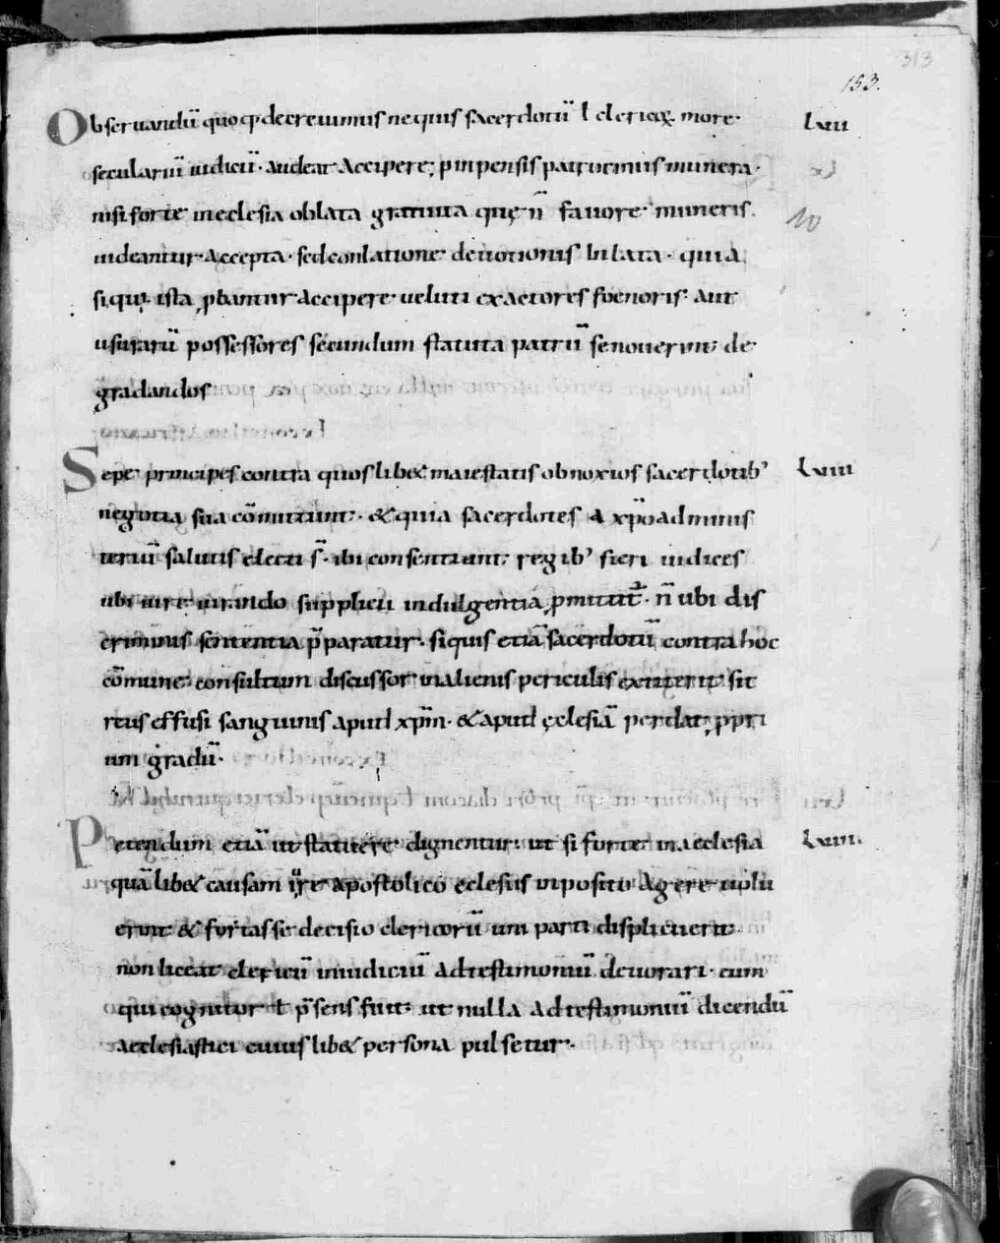 313
153.
Obseruandū quoq; decreuimus nequis sacerdotū ł clericoꝝ more· Lxii
seculariū iudicū· audeat accipere; p inpensis patrociniis munera·
nisi forte in eclesia oblata gratuita quę n̄ fauore muneris
uideantur accepta· sed conlatione deuotionis inlata· quia
si qui ista ꝓbantur accipere ueluti exactores foenoris· aut
usurarū possessores secundum statuta patrū se nouerint de
gradandos
Sepe principes contra quos libet maiestatis obnoxios sacerdotib' Lxiii
negotia sua cōmittunt· & quia sacerdotes a xp̄o ad minis
teriū salutis electi s̄· ibi consentiant regib' fieri iudices
ubi iure iurando supplicii indulgentia ꝓmittit̄· n̄ ubi dis
criminis sententia p̄paratur· siquis etiā sacerdotū contra hoc
cōmune consultum discussor in alienis periculis extiterit sit
reus effusi sanguinis apud xp̄m· & apud ęclesiā perdat ꝓpri
um gradū·
Petendum etiā ut statuere dignentur· ut si forte in aeclesia Lxiiii.
quālibet causam iure apostolico eclesiis inposito agere uolu
erint & fortasse decisio clericorū uni parti displicuerit
non liceat clericū in iudiciū ad testimoniū deuocari· eum
qui cognitor ł p̄sens fuit· ut nulla ad testimoniū dicendū
aeclesiastici cuiuslibet persona pulsetur·